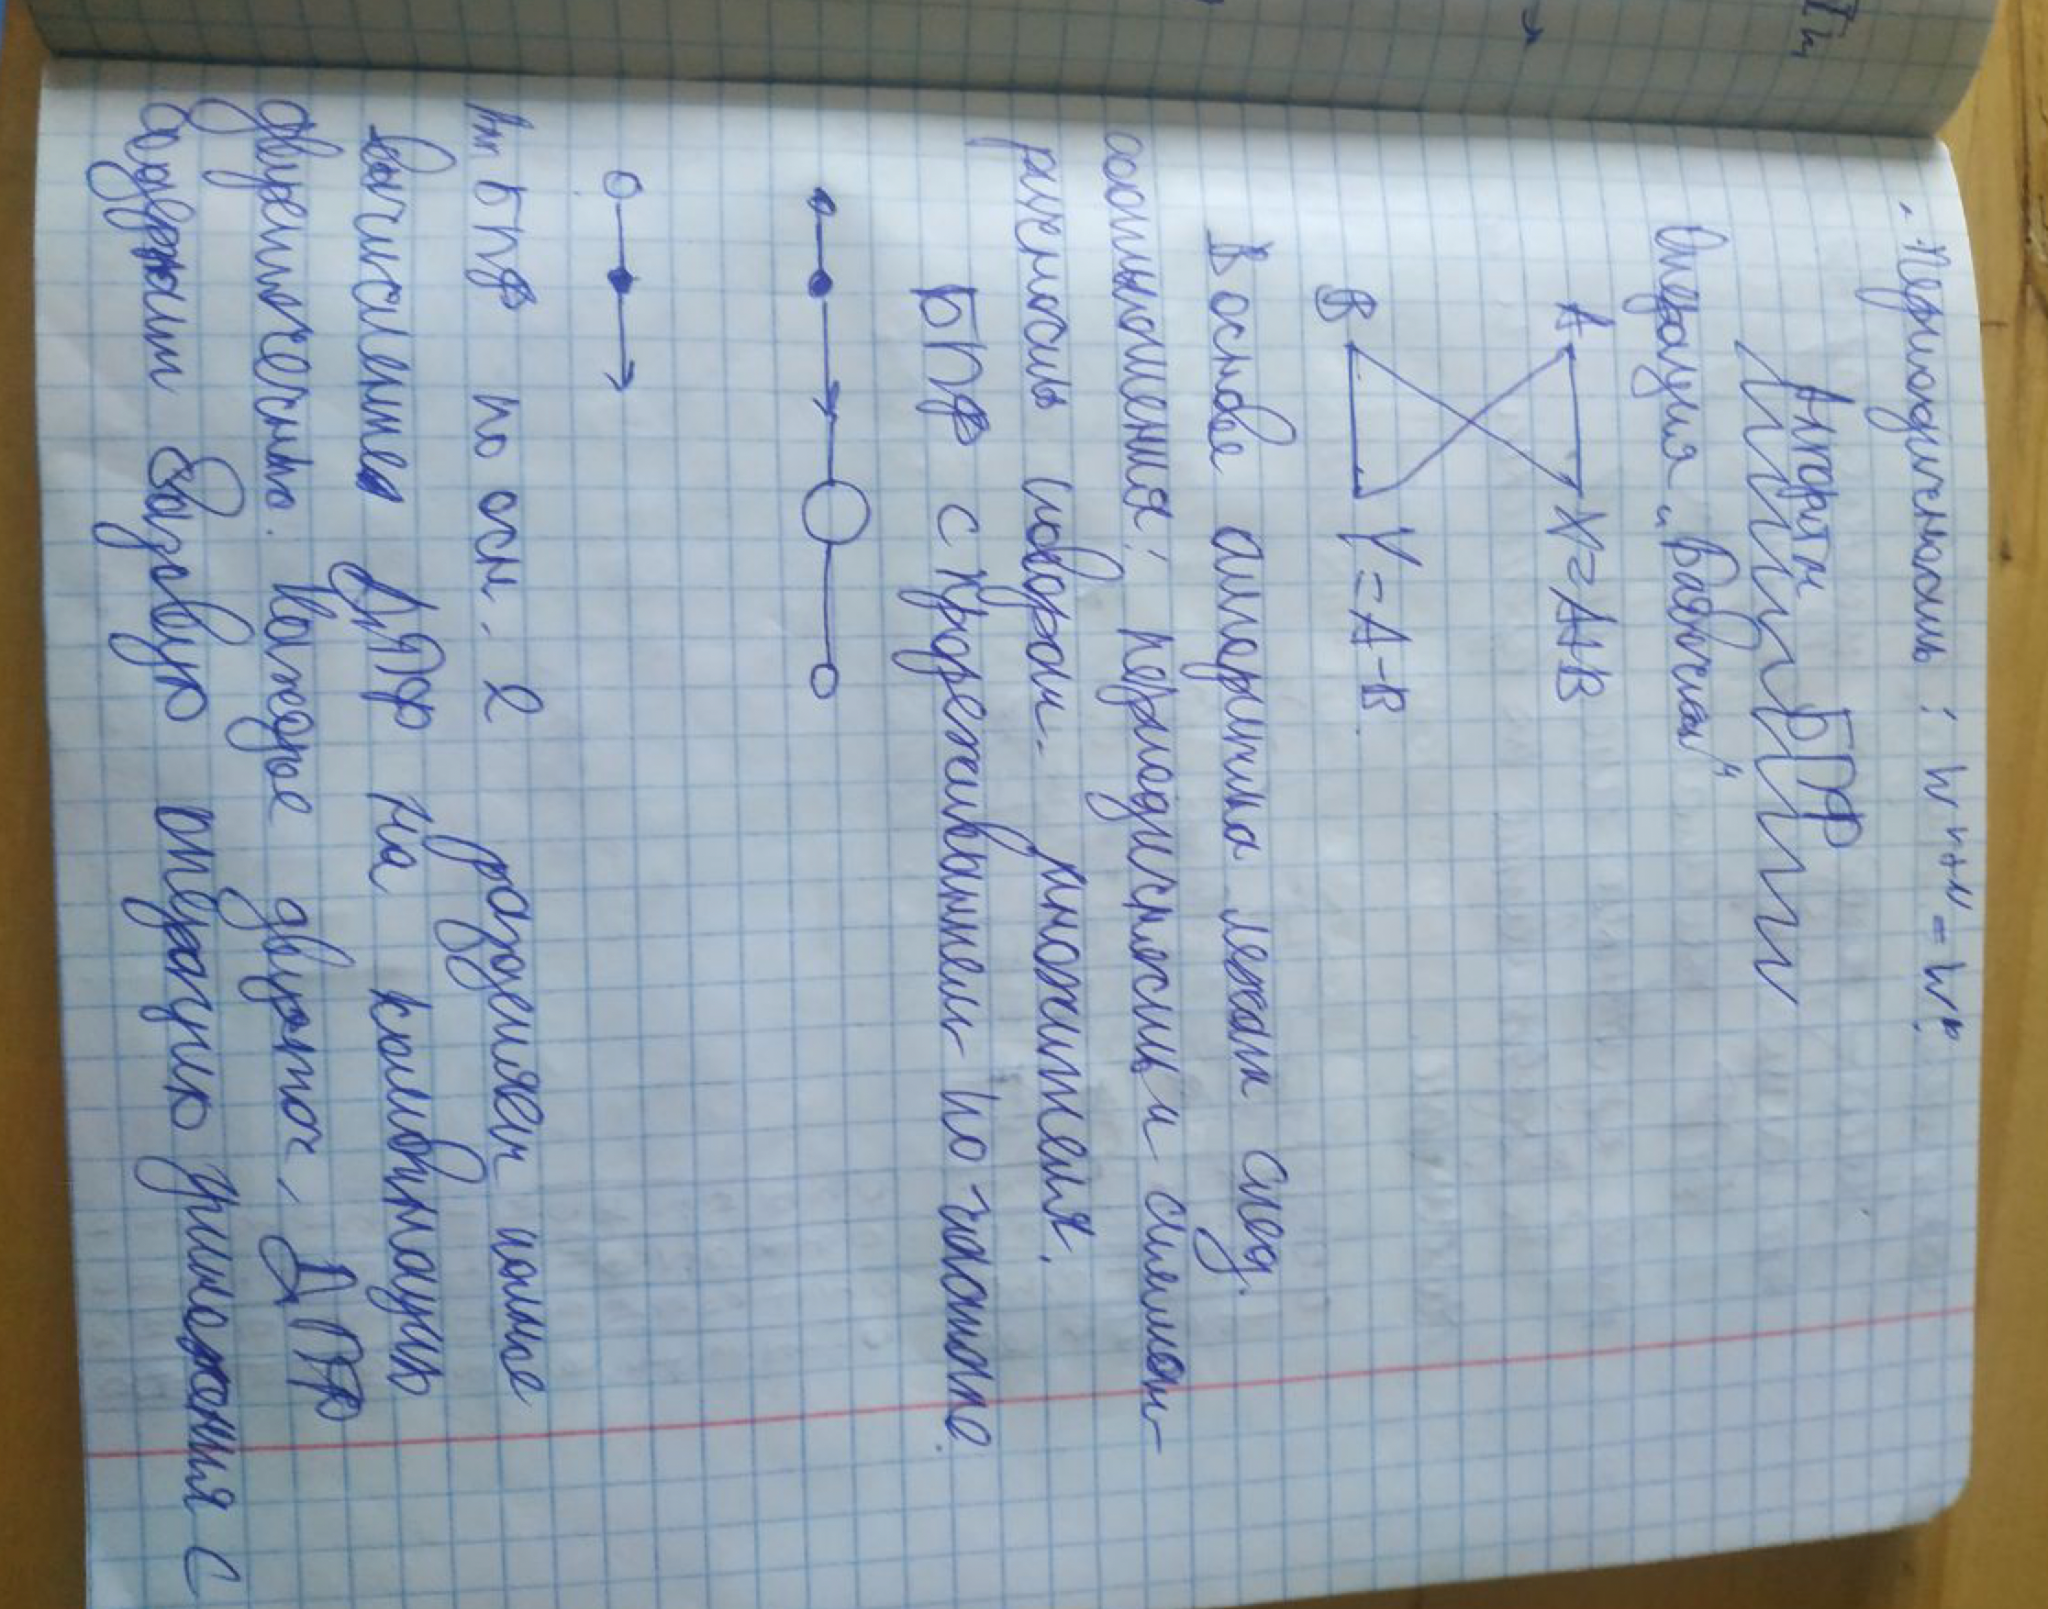 - Периодичность: W^n+N = W^n.
Алгоритм БПФ
Операция „Бабочка"
A X=A+B
B Y=A-B.
В основе алгоритма лежат след.
соотношения: периодичность и симмет-
ричность поворот. множителя.
БПФ с прореживанием по частоте.
БПФ по осн. 2 разделяем полное
вычисление ДПФ на комбинацию
двухточечных. Каждое двухточ. ДПФ
содержит базовую операцию умножения с